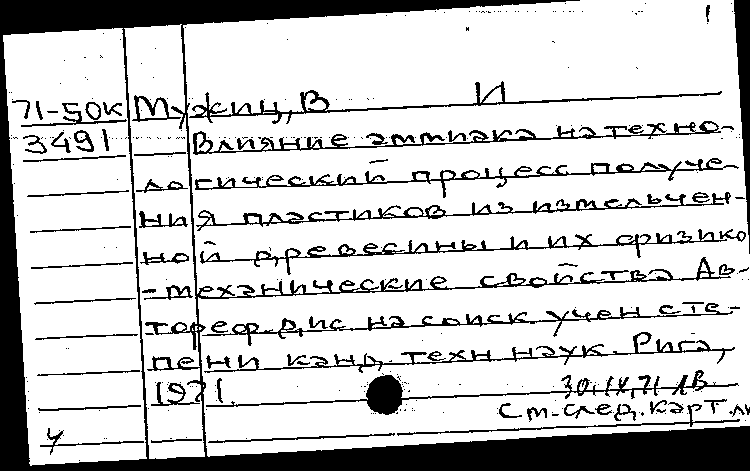 1
71-50К Мужиц, В И
3491 Влияние аммиака на техно-
логический процесс получе-
ния пластиков из измельчен-
ной древесины и их физико
-механические свойства Ав-
тореф. дис. на соиск учен сте-
пени канд. техн наук. Рига,
1971.
30.IX.71 ЛВ.
См. след. карт.